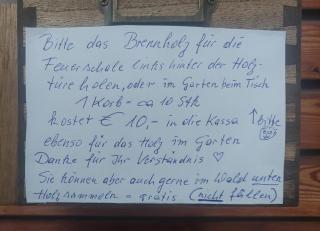 Bitte das Brennholz für die
Feuerschale links hinter der Holz-
türe holen, oder im Garten beim Tisch
1 Korb = ca 10 Stk
kostet € 10,- in die Kassa
↑ Bitte
ebenso für das Holz im Garten
Danke für Ihr Verständnis ♡
Sie können aber auch gerne im Wald unten
Holz sammeln = gratis (nicht fällen)